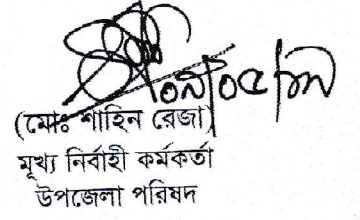 (মোঃ শাহিন রেজা)
মূখ্য নির্বাহী কর্মকর্তা
উপজেলা পরিষদ